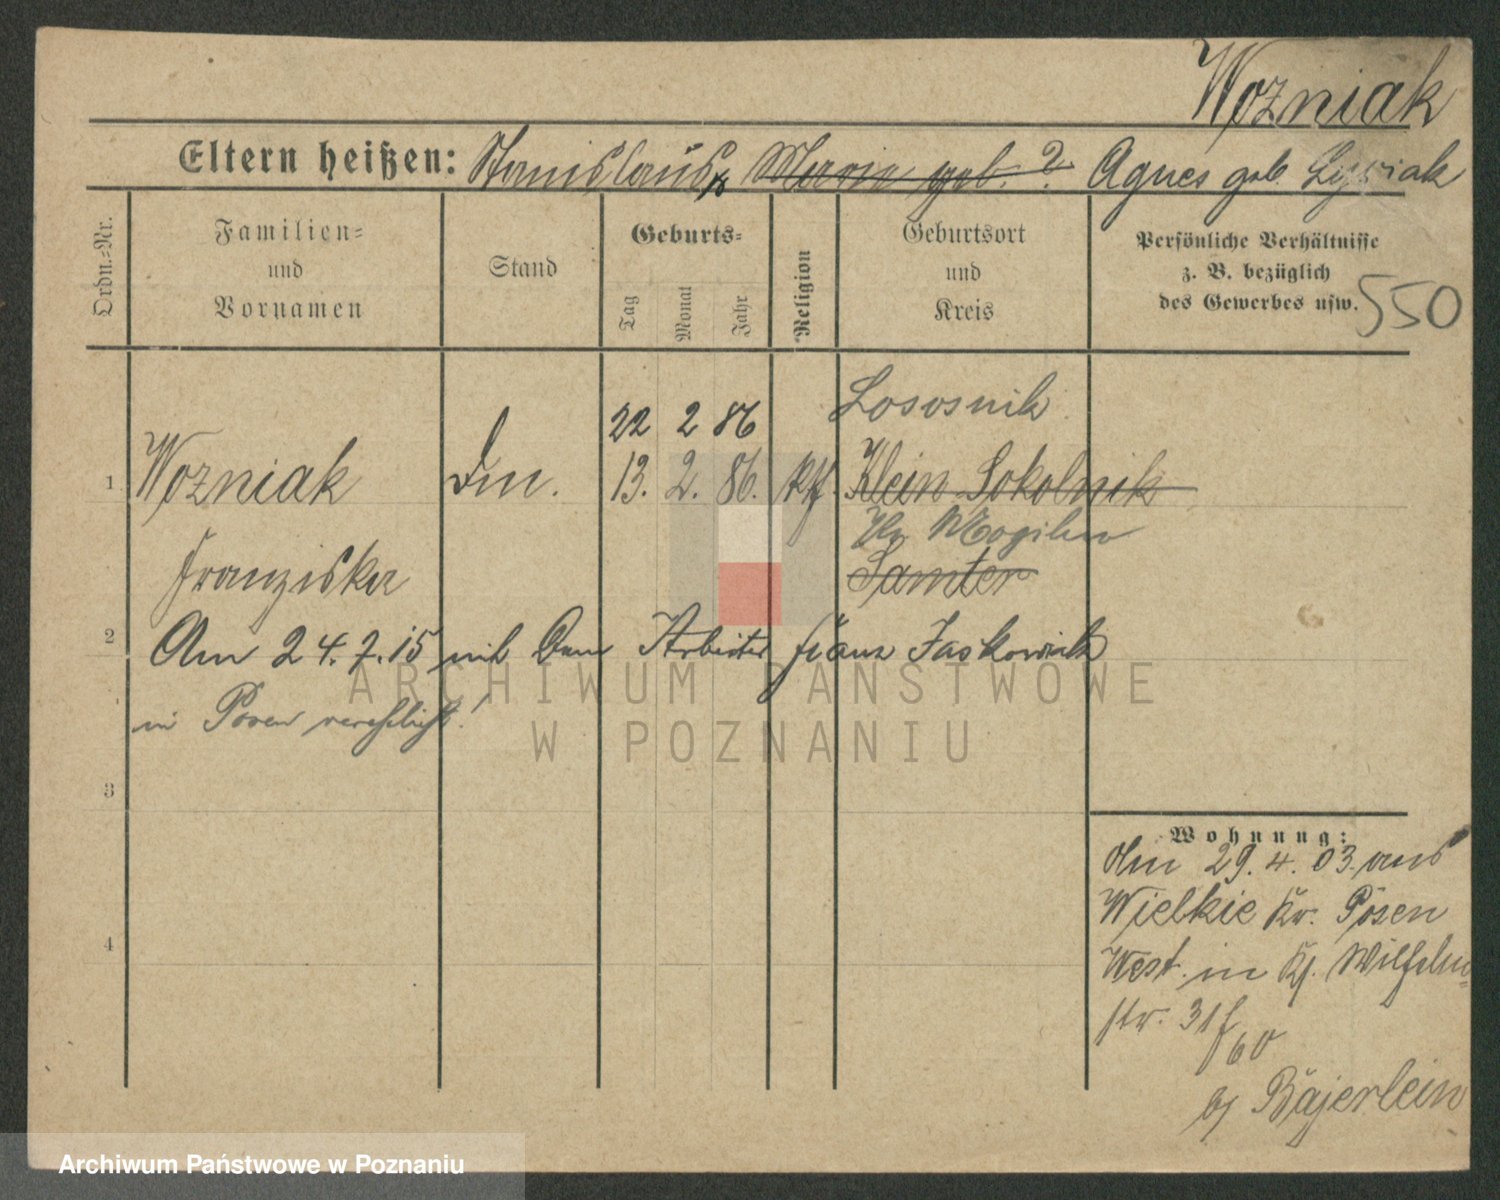 Wozniak
Eltern heißen: Stanislaus Maria geb. ? Agnes geb.
Ordn.=Nr.
Familien=
und
Vornamen
Stand
Geburts=
Tag
Monat
Jahr
Religion
Geburtsort
und
Kreis
Persönliche Verhältnisse
z. B. bezüglich
des Gewerbes usw.
550
Lososnik
22 2 86
1 Wozniak Dm. 13. 2. 86. Klein Sokolnik
Kr. Mogilno
Franziska Samter
2 Am 24.7.15 mit dem Arbeiter Franz Jaskowiak
in Posen verehelicht!
3
4
Wohnung:
Am 29. 4. 03. aus
Wielkie Kr. Posen
West. in Kg. Wilhelm=
str. 31f
60
bj Bajerlein
ARCHIWUM PAŃSTWOWE
W POZNANIU
Archiwum Państwowe w Poznaniu